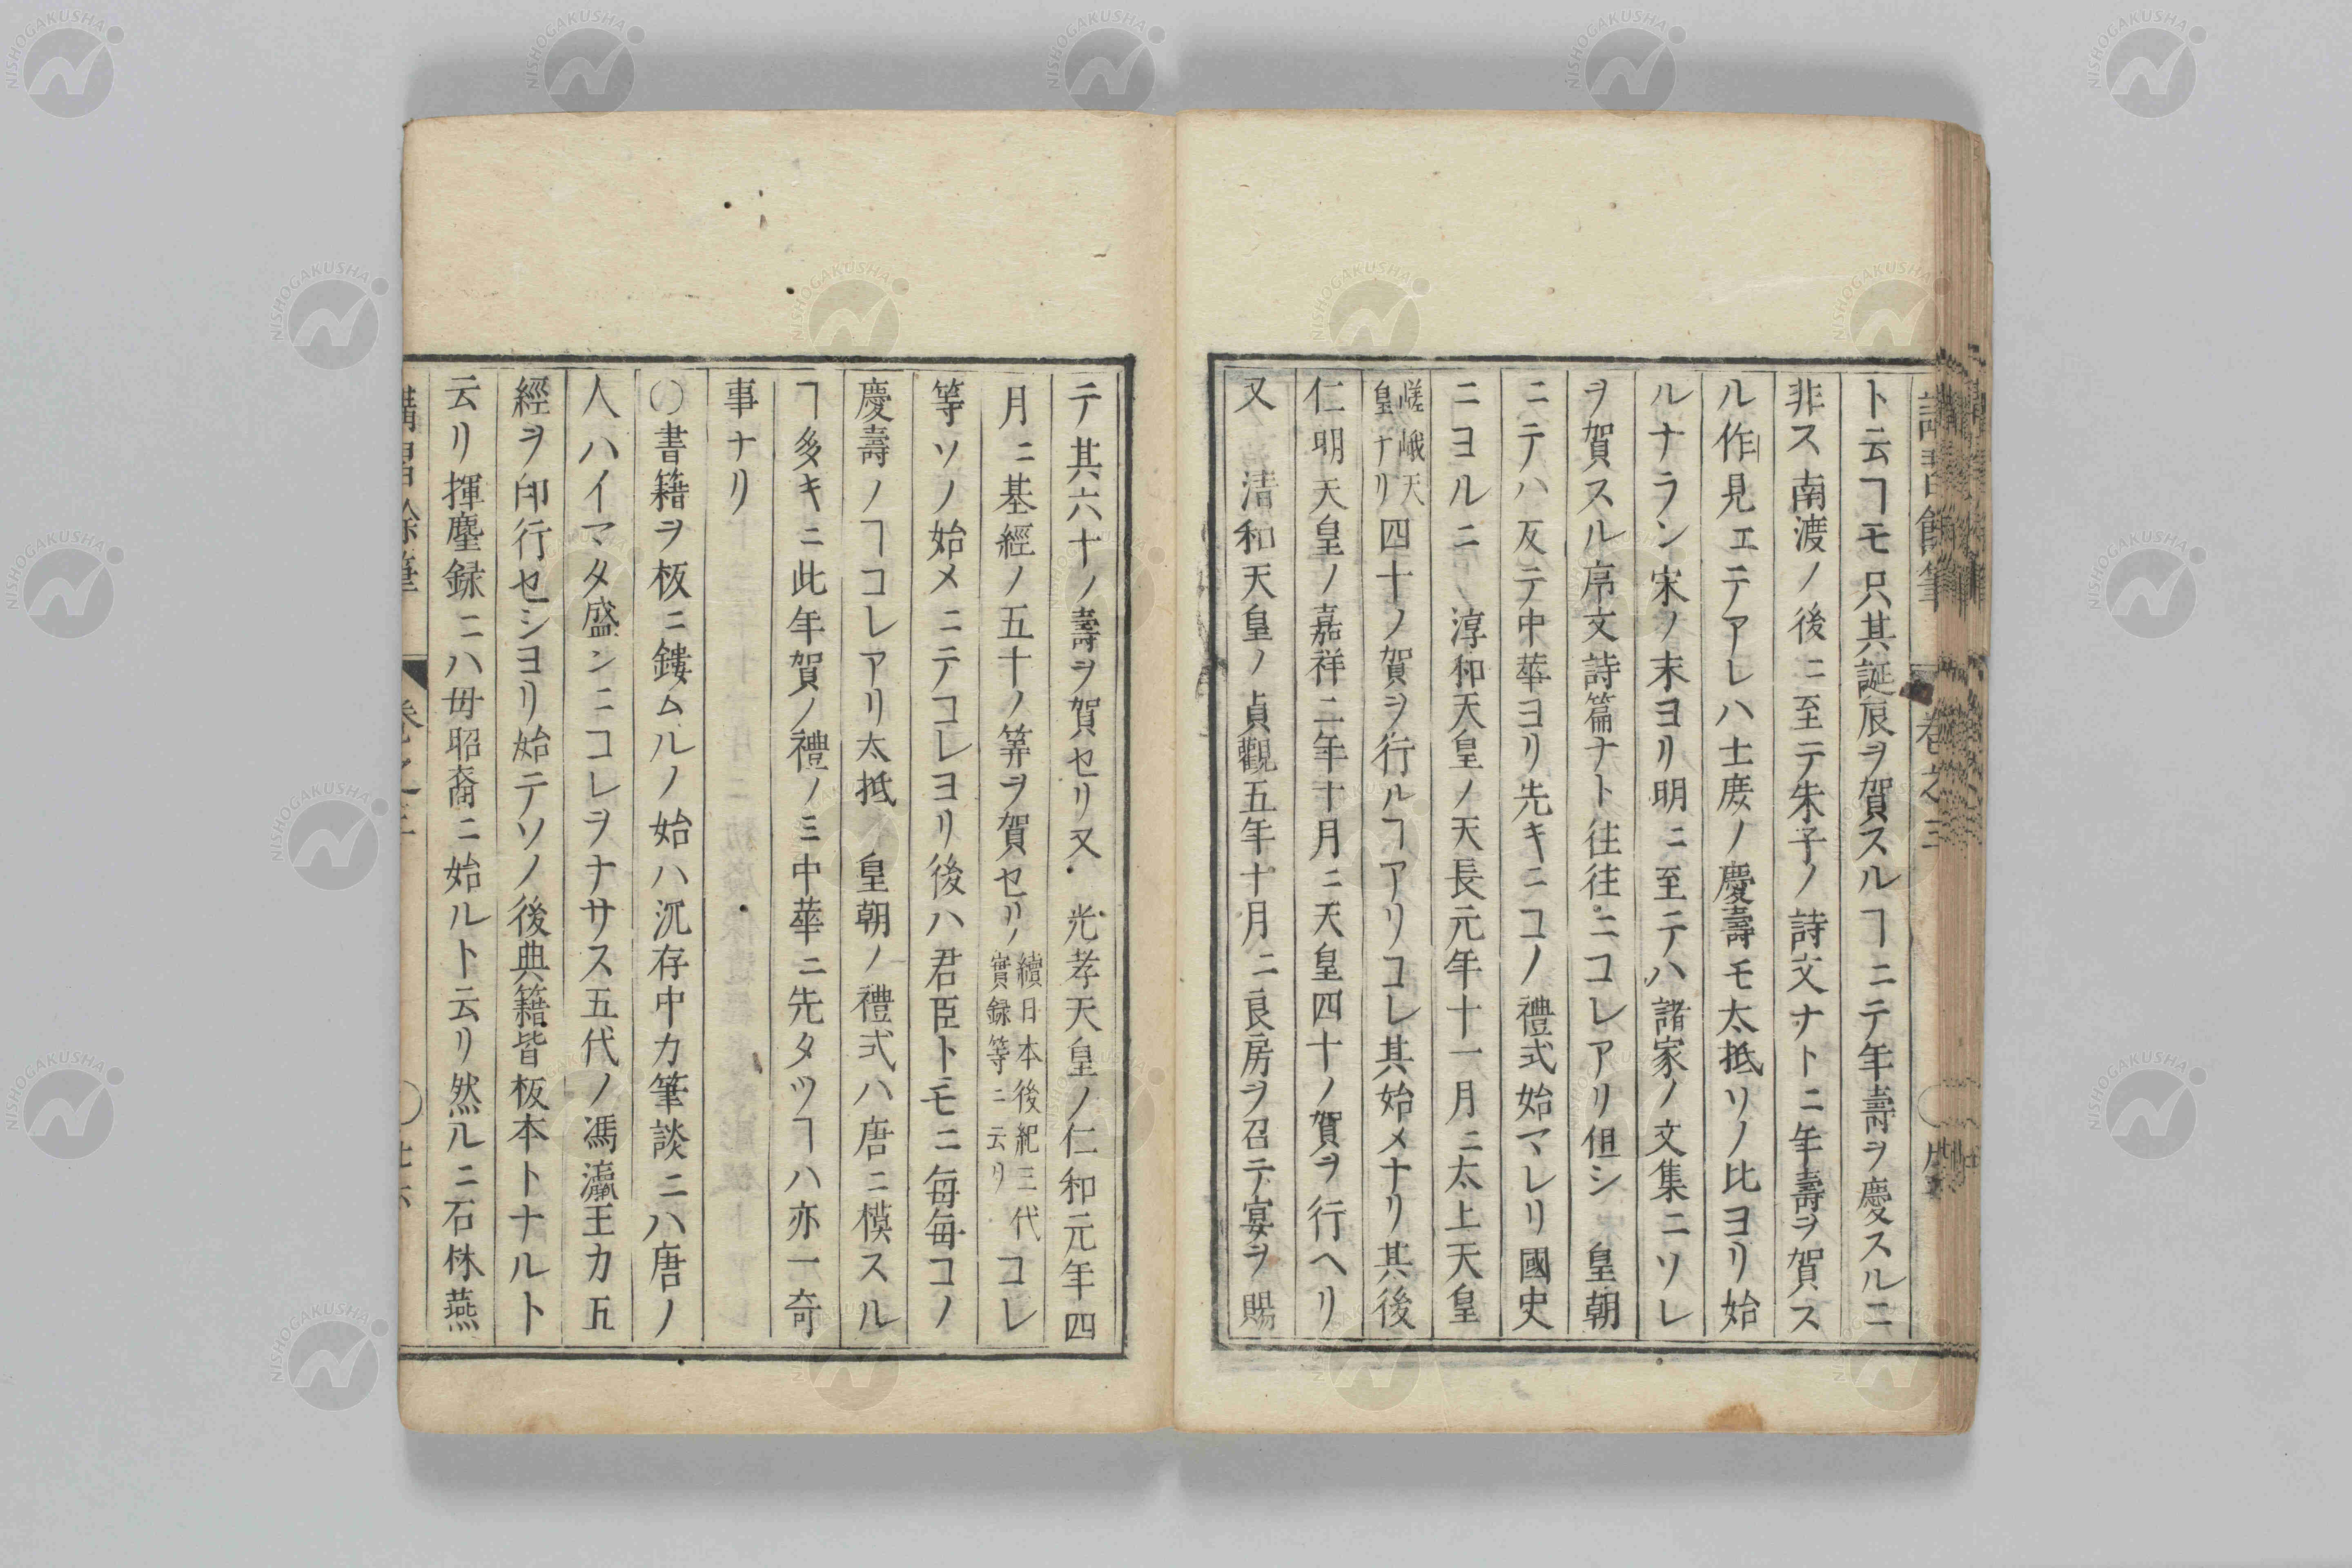 ト云ヿモ只其誕辰ヲ賀スルヿニテ年壽ヲ慶スルニ
非ス南渡ノ後ニ至テ朱子ノ詩文ナトニ年壽ヲ賀ス
ル作見エテアレハ士庻ノ慶壽モ太抵ソノ比ヨリ始
ルナラン宋ノ末ヨリ明ニ至テハ諸家ノ文集ニソレ
ヲ賀スル序文詩篇ナト往往ニコレアリ但シ 皇朝
ニテハ反テ中華ヨリ先キニコノ禮式始マレリ國史
ニヨルニ 淳和天皇ノ天長元年十一月ニ太上天皇
嵯峨天皇ナリ四十ノ賀ヲ行ルヿアリコレ其始メナリ其後
仁明天皇ノ嘉祥二年十月ニ天皇四十ノ賀ヲ行ヘリ
又 清和天皇ノ貞觀五年十月ニ良房ヲ召テ宴ヲ賜
テ其六十ノ壽ヲ賀セリ又 光孝天皇ノ仁和元年四
月ニ基經ノ五十ノ筭ヲ賀セリ續日本後紀三代實録等ニ云リコレ
等ソノ始メニテコレヨリ後ハ君臣トモニ毎毎コノ
慶壽ノヿコレアリ太抵 皇朝ノ禮式ハ唐ニ模スル
ヿ多キニ此年賀ノ禮ノミ中華ニ先タツヿハ亦一奇
事ナリ
〇書籍ヲ板ニ鏤ムルノ始ハ沉存中カ筆談ニハ唐ノ
人ハイマタ盛ンニコレヲナサス五代ノ馮瀛王カ五
經ヲ印行セシヨリ始テソノ後典籍皆板本トナルト
云リ揮麈録ニハ毋昭裔ニ始ルト云リ然ルニ石林燕
卷之三